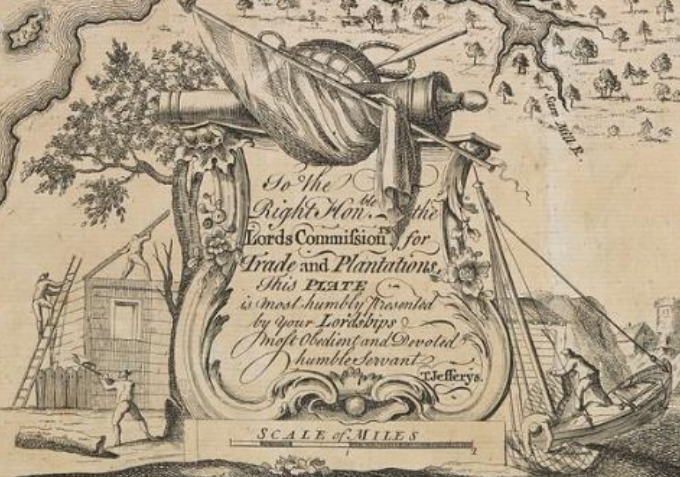 Saw Mill R.
To the
Right Hon.ble the
Lords Commiſsion.rs for
Trade and Plantations,
This PLATE
is most humbly Presented
by Your Lordships
most Obedient and Devoted
humble Servant
T. Jefferys.
SCALE of MILES
1 2